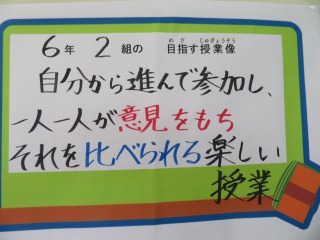 6年 2組の 目指す授業像
自分から進んで参加し、
一人一人が意見をもち
それを比べられる楽しい
授業